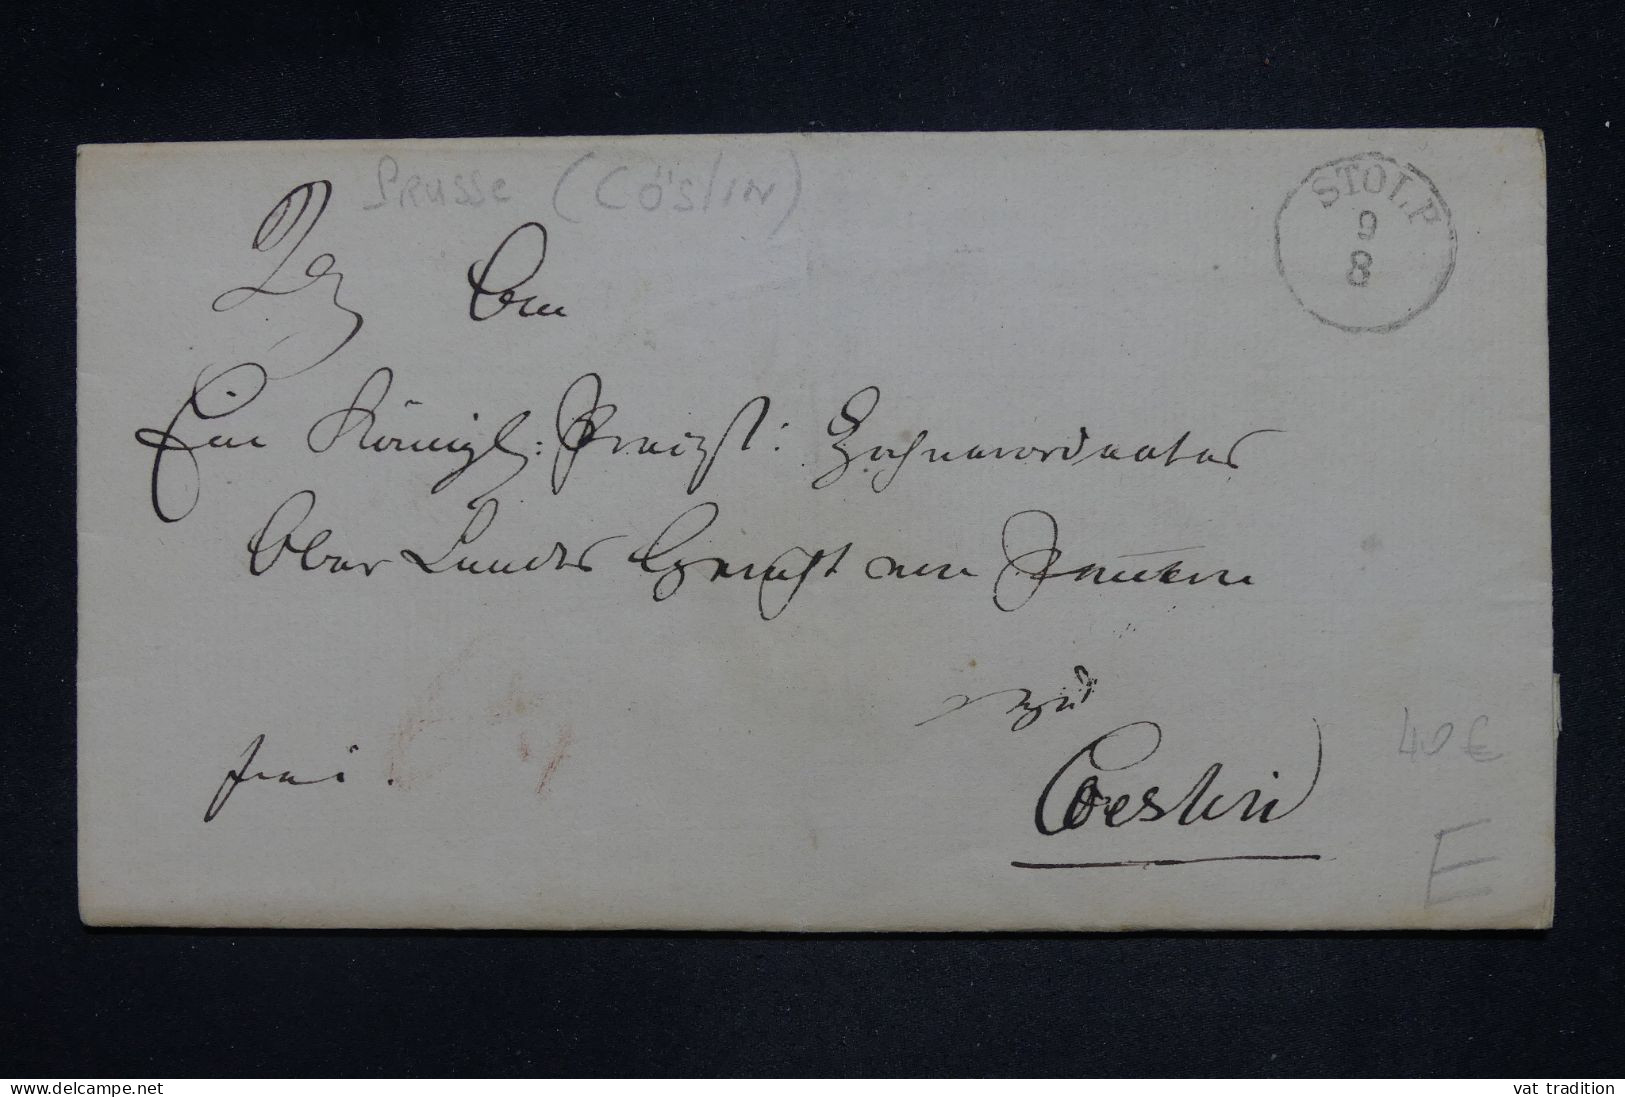 Prusse (Cöslin)
STOLP
9
8
An
Ein Königl: Preußl: Hochverordnetes
Ober Landes Gericht von Pommern
zu
Coeslin
frei.
40€
E
www.delcampe.net
vat tradition